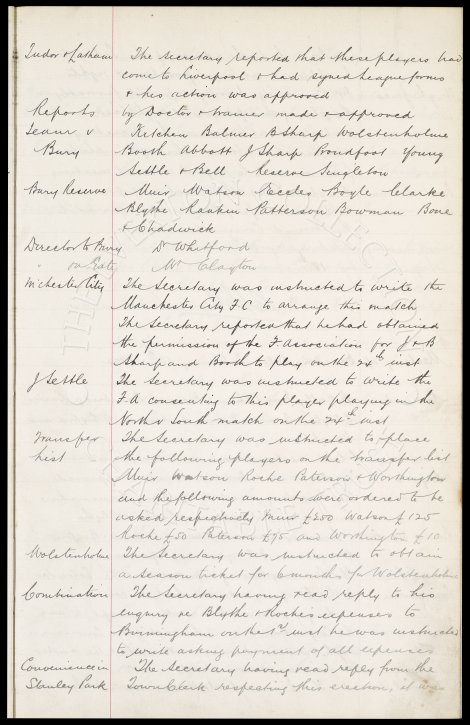 Tudor & Latham The Secretary reported that these players had
come to Liverpool & had signed League forms
& his action was approved
Reports by Doctor & trainer made & approved
Team v Kitchen Balmer B Sharp Wolstenholme
Bury Booth Abbott J Sharp Proudfoot Young
Settle & Bell Reserve Singleton
Bury Reserve Muir Watson Eccles Boyle Clarke
Blythe Rankin Patterson Bowman Bone
& Chadwick
Director to Bury Dr Whitford
on Gate Mr Clayton
M'chester City The Secretary was instructed to write the
Manchester City F.C to arrange this match
The Secretary reported that he had obtained
the permission of the F. Association for J & B
Sharp and Booth to play on the 24th inst
J Settle The Secretary was instructed to write the
F A consenting to this player playing in the
North v South match on the 24th inst
Transfer The Secretary was instructed to place
List the following players on the transfer list
Muir Watson Roche Paterson & Worthington
and the following amounts were ordered to be
asked respectively Muir £200 Watson £125
Roche £50 Paterson £75 and Worthington £10
Wolstenholme The Secretary was instructed to obtain
a season ticket for 6 months for Wolstenholme
Combination The Secretary having read reply to his
enquiry re Blythe & Roche's expenses to
Birmingham on the inst he was instructed
to write asking payment of all expenses
Convenience in The Secretary having read reply from the
Stanley Park Town Clerk respecting this erection, it was